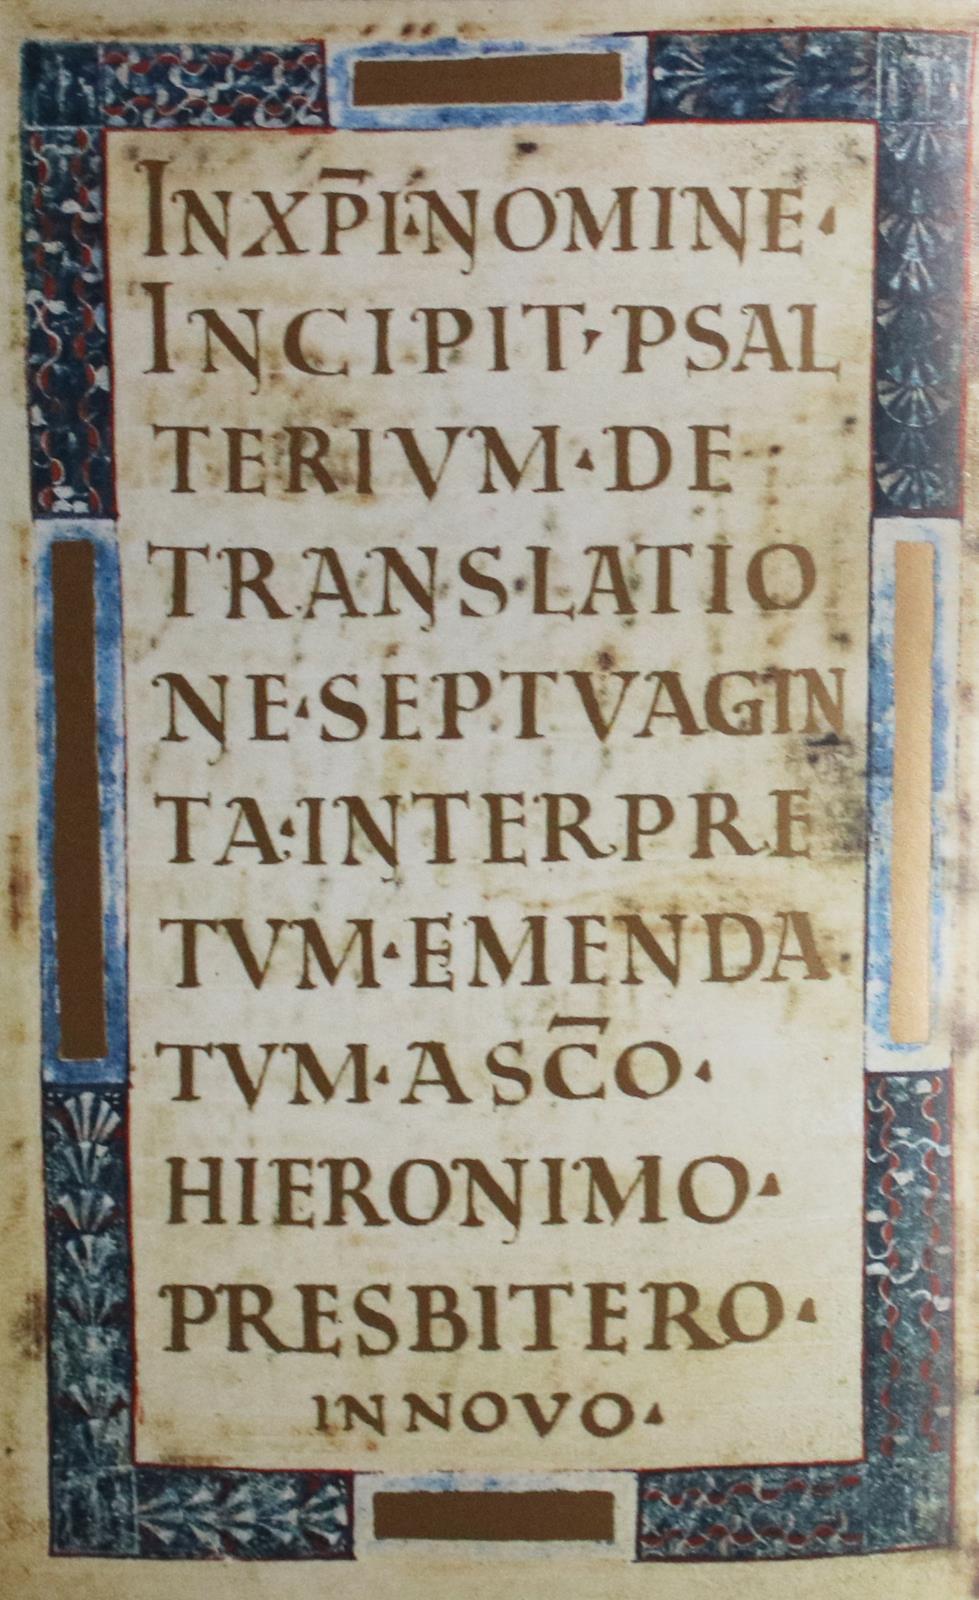 INXP̄I·NOMINE·
INCIPIT·PSAL
TERIVM·DE
TRANSLATIO
NE·SEPTVAGIN
TA·INTERPRE
TVM·EMENDA
TVM·A SC̄O·
HIERONIMO·
PRESBITERO·
IN NOVO·